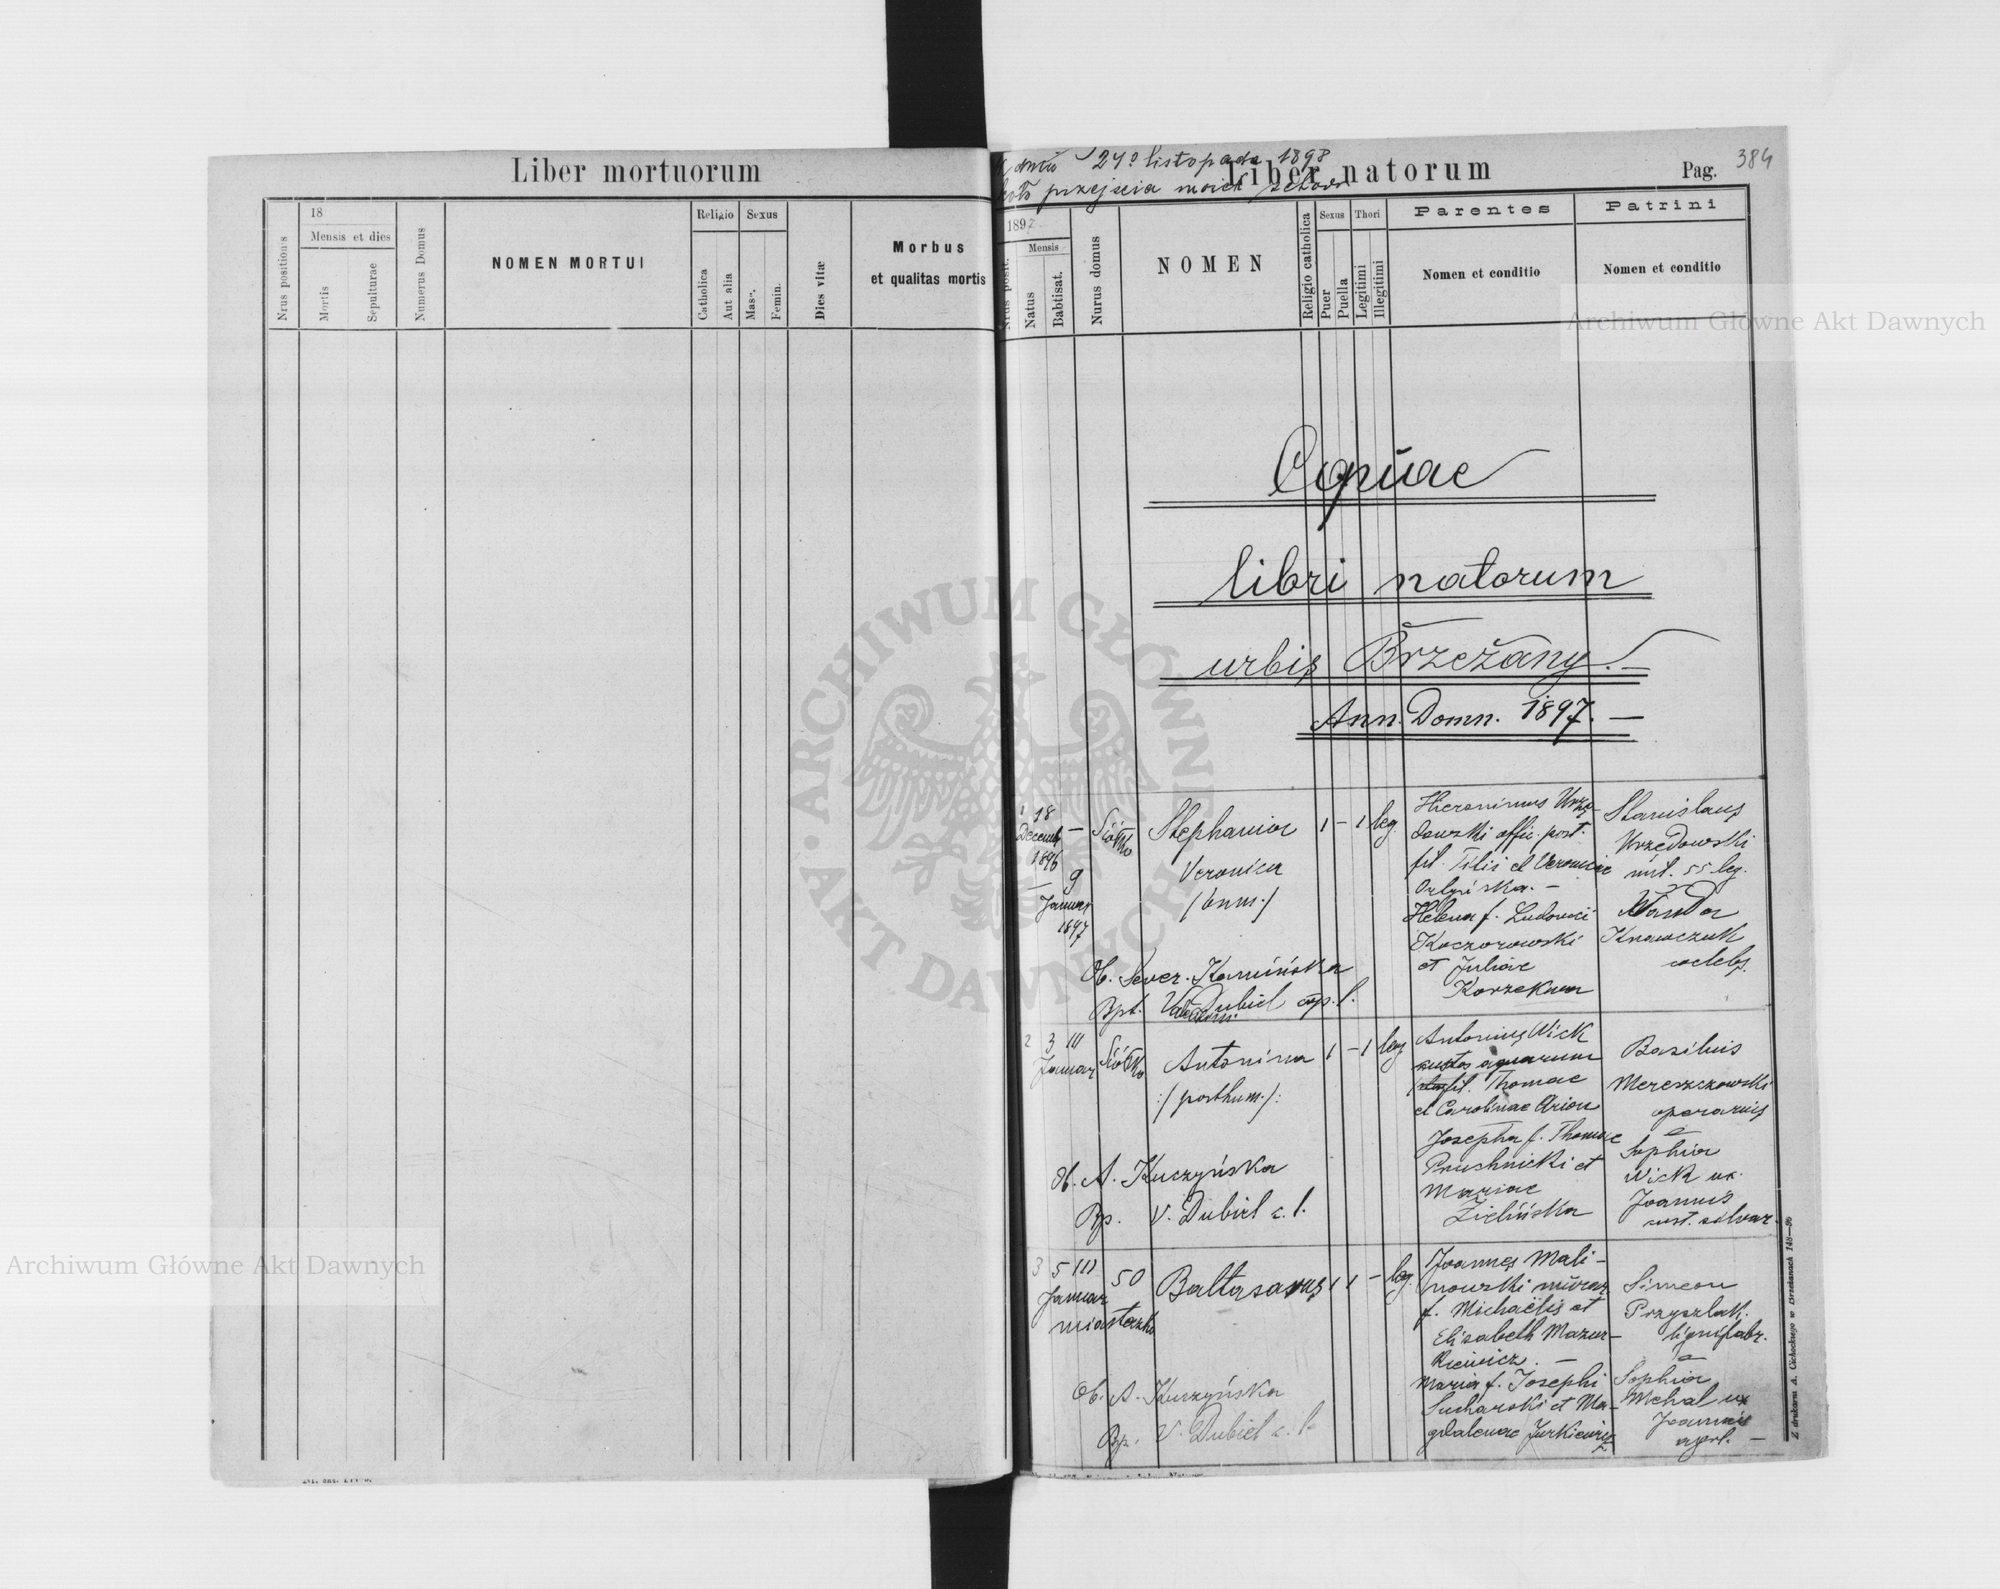 Liber mortuorum
Nrus positionis
18
Mensis et dies
Mortis
Sepulturae
Numerus Domus
NOMEN MORTUI
Religio
Catholica
Aut alia
Sexus
Masc.
Femin.
Dies vitæ
Morbus
et qualitas mortis
24º listopada 1898
przejścia
Liber natorum
Pag. 384
1897
Nrus posit.
Mensis
Natus
Babtisat.
Nurus domus
NOMEN
Religio catholica
Sexus
Puer
Puella
Thori
Legitimi
Illegitimi
Parentes
Nomen et conditio
Patrini
Nomen et conditio
Copiae
libri natorum
urbis Brzeżany.
Ann. Domn. 1897. —
1 18
Decemb
1896
—
9
Januar
1897
Siółko
Stephania
Veronica
/bnm./
1 – 1 leg.
Hieronimus Urzę-
dowski offic. post.
fil. Titii et Veronicae
Helena f. Ludovici
Koczorowski
et Juliae
Korzekwa
Stanislaus
Urzędowski
mil. 55 leg.
Wanda
Krawczuk
caelebs.
Ob. Sever. Kamińska
Bpt. Val. Dubiel cop. l.
2 3 III
Januar
Siółko
Antonina
:/posthum./:
1 – 1 leg
Antonius Wick
custos aquarum
fil. Thomae
et Carolinae Orion
Josepha f. Thomae
Pruchnicki et
Mariae
Zielińska
Basilius
Mereszczowski
operarius
Sophia
Wick ux.
Joannis
cust. silvar.
Ob. A. Kuczyńska
Bp. V. Dubiel c. l.
3 5 III
Januar
50
miasteczko
Baltasarus
1 1 – leg.
Joannes Mali-
nowski murar
f. Michaëlis et
Elisabeth Mazur-
kiewicz. —
Maria f. Josephi
Sucharski et Ma-
gdalenae Jurkiewicz
Simeon
Przyszlak
lignifabr.
Sophia
Mchal ux
Joannis
agril. —
Ob. A. Kuczyńska
Bp. V. Dubiel c. l.
Z drukarni A. Cichockiego w Brzeżanach 148—96
Archiwum Główne Akt Dawnych
ARCHIWUM GŁÓWNE AKT DAWNYCH
Archiwum Główne Akt Dawnych